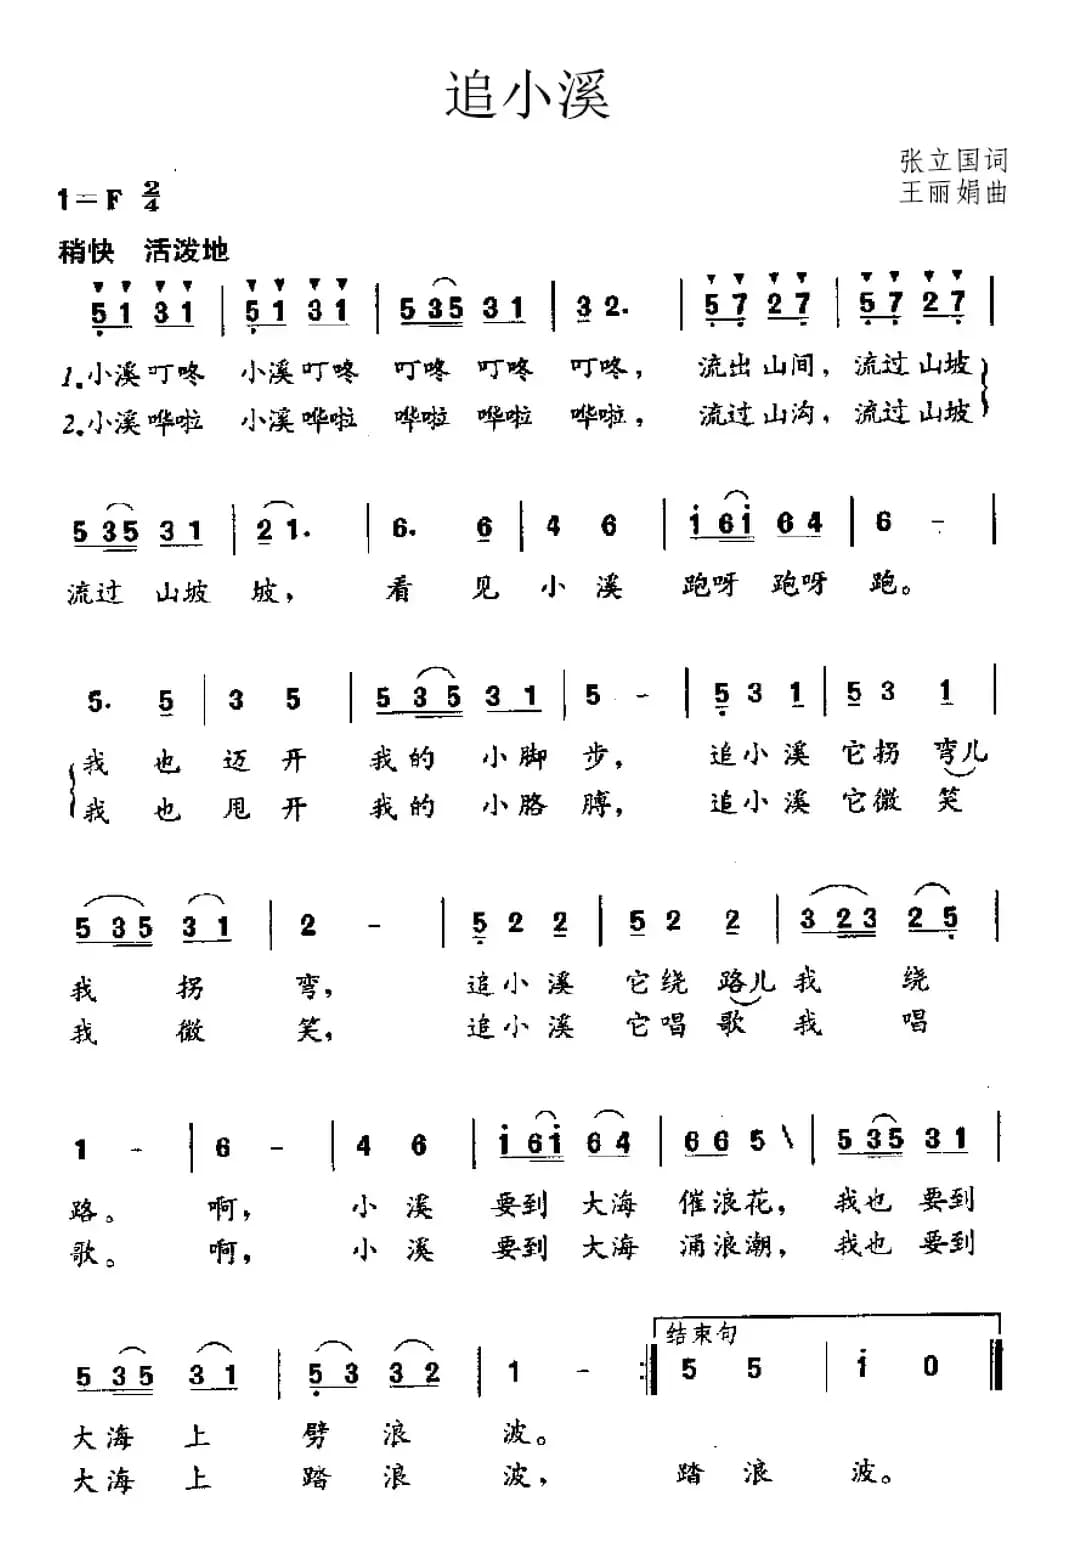 追小溪
张立国词
1=F 2/4
王丽娟曲
稍快 活泼地
5 1 3 1 | 5 1 3 1 | 5 3 5 3 1 | 3 2. | 5 7 2 7 | 5 7 2 7 |
1.小溪叮咚 小溪叮咚 叮咚 叮咚 叮咚, 流出山间, 流过山坡
2.小溪哗啦 小溪哗啦 哗啦 哗啦 哗啦, 流过山沟, 流过山坡
5 3 5 3 1 | 2 1. | 6. 6 | 4 6 | i 6 i 6 4 | 6 - |
流过 山坡 坡, 看 见 小 溪 跑呀 跑呀 跑。
5. 5 | 3 5 | 5 3 5 3 1 | 5 - | 5 3 1 | 5 3 1 |
我 也 迈 开 我 的 小 脚 步, 追 小 溪 它 拐 弯儿
我 也 甩 开 我 的 小 胳 膊, 追 小 溪 它 微 笑
5 3 5 3 1 | 2 - | 5 2 2 | 5 2 2 | 3 2 3 2 5 |
我 拐 弯, 追 小 溪 它 绕 路儿 我 绕
我 微 笑, 追 小 溪 它 唱 歌 我 唱
1 - | 6 - | 4 6 | i 6 i 6 4 | 6 6 5 \ | 5 3 5 3 1 |
路。 啊, 小 溪 要到 大海 催浪花, 我也 要到
歌。 啊, 小 溪 要到 大海 涌浪潮, 我也 要到
结束句
5 3 5 3 1 | 5 3 3 2 | 1 - :‖ 5 5 | i 0 ‖
大海 上 劈 浪 波。
大海 上 踏 浪 波, 踏 浪 波。